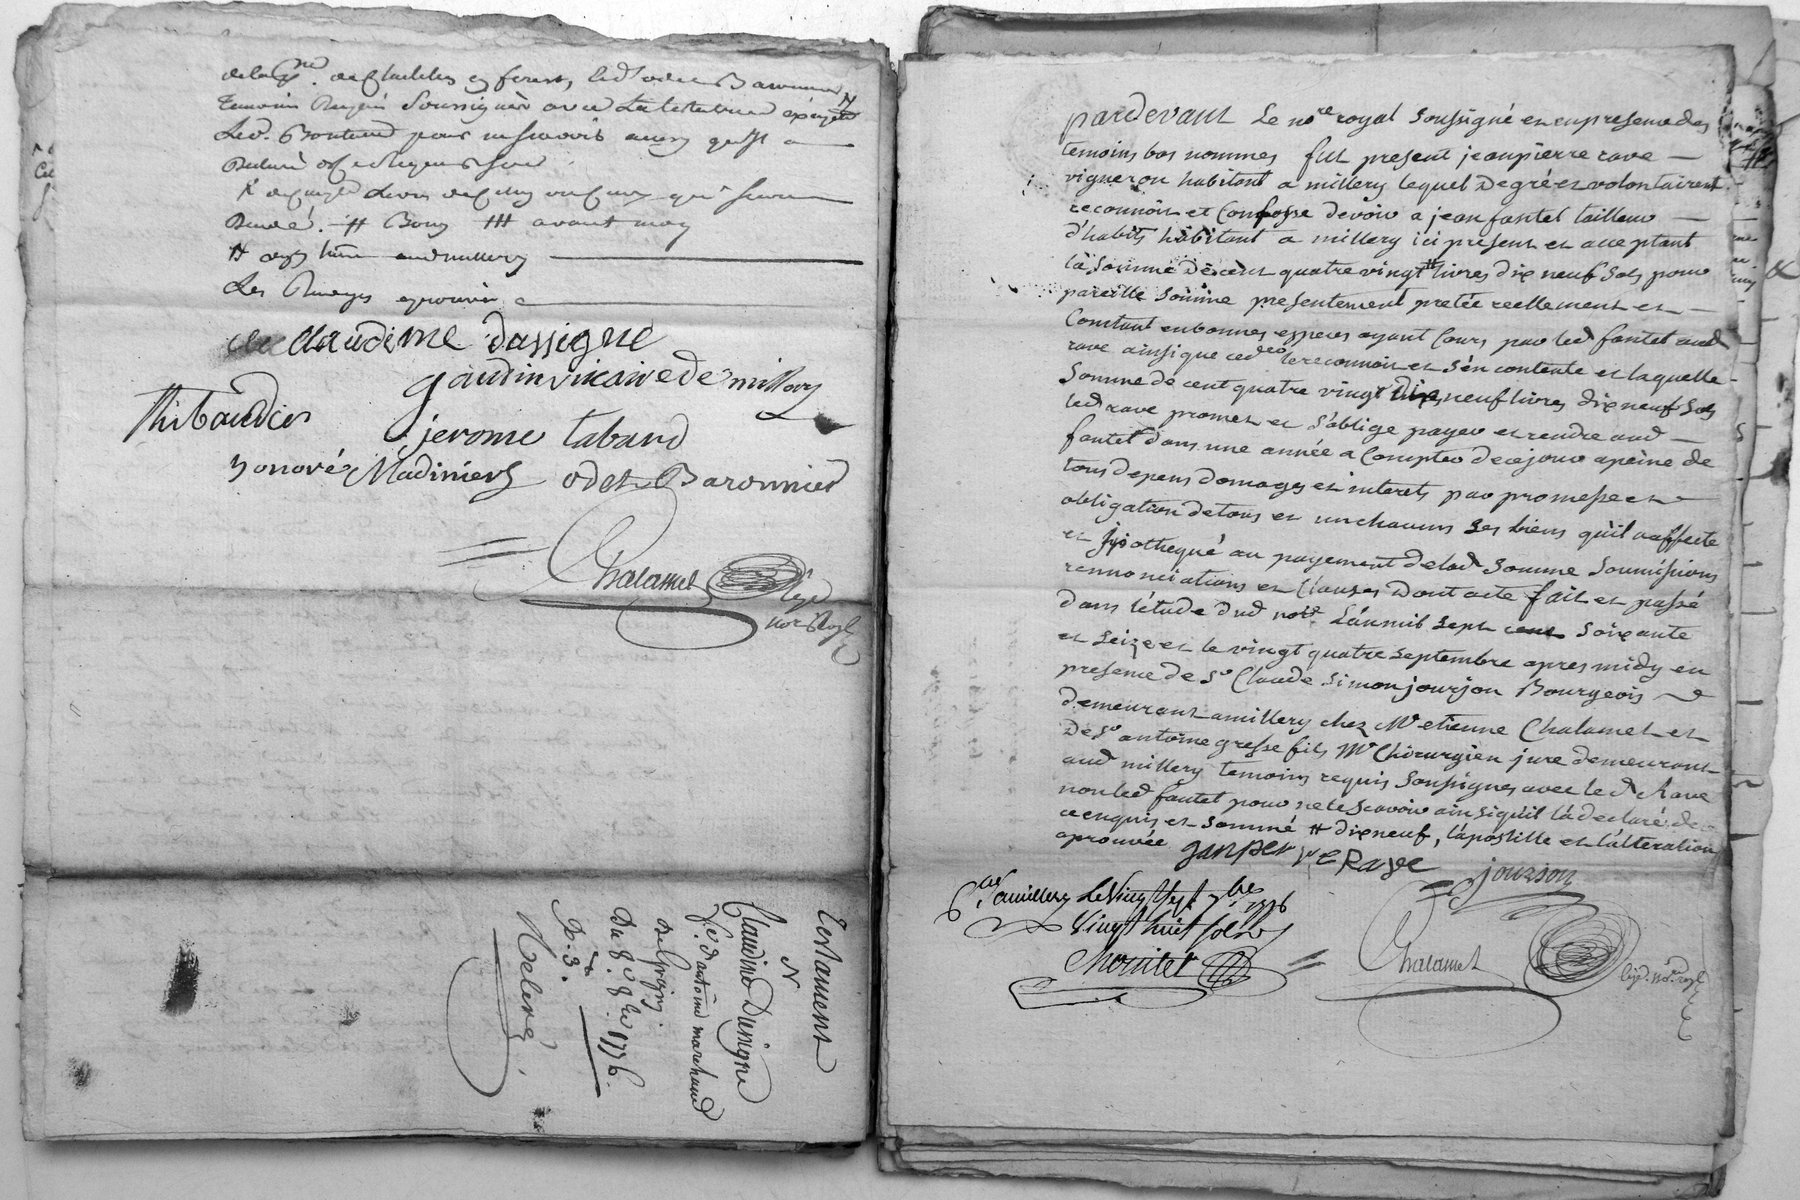 temoins Requis Soussignés avec La testatrice
Led. Bontend pour ne scavoir
Les Renvoys aprouvés
Claudine dassigne
gaudin vicaire de millery
Thibaudier
jerome tabard
honoré Madiniers odet Baronnier
Chalamel
nore Royl
Testament
N
Claudine Dasigne
fe. d'antoine marchand
De Grigny.
Du 8. 8bre 1776.
R. 3.
Relevé
pardevant Le nore royal soussigné et en presence des
temoins bas nommés fut present jean pierre rave —
vigneron habitant a millery lequel de gré et volontairemt
reconnoit et Confesse devoir a jean fantet tailleur —
d'habits habitant a millery ici present et acceptant
la somme de cent quatre vingt # livres dix neuf sols pour
pareille somme presentement pretée reellement et —
Comptant en bonnes especes ayant Cours par led fantet aud
rave ainsi que ced. le reconnoit et s'en contente et laquelle
somme de cent quatre vingt dix neuf livres dix neuf sols
led rave promet et s'oblige payer et rendre aud —
fantet dans une année a Compter de ce jour a peine de
tous depens domages et interets par promesse et —
obligation de tous et un chacuns ses biens qu'il a affecté
et hypothequé au payement de lad somme soumissions
rennonciations et Clauses dont acte fait et passé
dans l'étude dud nore. L'an mil sept cent soixante
et seize et le vingt quatre septembre apres midy en
presence de Sr Claude Simon jourjon Bourgeois
demeurant a millery chez Mr etienne Chalamel et
de Sr antoine gresse fils Mr Chirurgien juré demeurant
aud millery temoins requis soussignés avec led Rave
non led fantet pour ne le scavoir ainsi qu'il l'a declaré de
ce enquis et sommé # dix neuf, l'apostille et l'alteration
aprouvée
jan pier re Rave
jourjon
Cllé a millery Le Vingt sept 7bre 1776
Vingt huit sols
Chalamel
nore royl